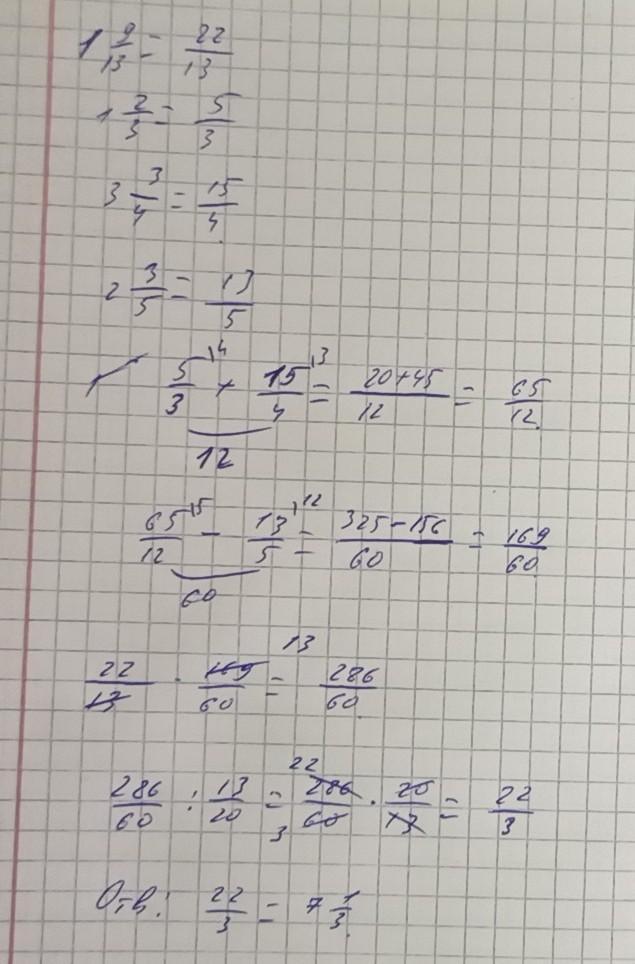 1 9/13 = 22/13
1 2/3 = 5/3
3 3/4 = 15/4
2 3/5 = 13/5
5/3 \4 + 15/4 \3 = 20+45/12 = 65/12
12
65/12 \5 - 13/5 \12 = 325-156/60 = 169/60
60
13
22/13 · 169/60 = 286/60
22
286/60 : 13/20 = 286/60 · 20/13 = 22/3
3
Отв: 22/3 = 7 1/3.